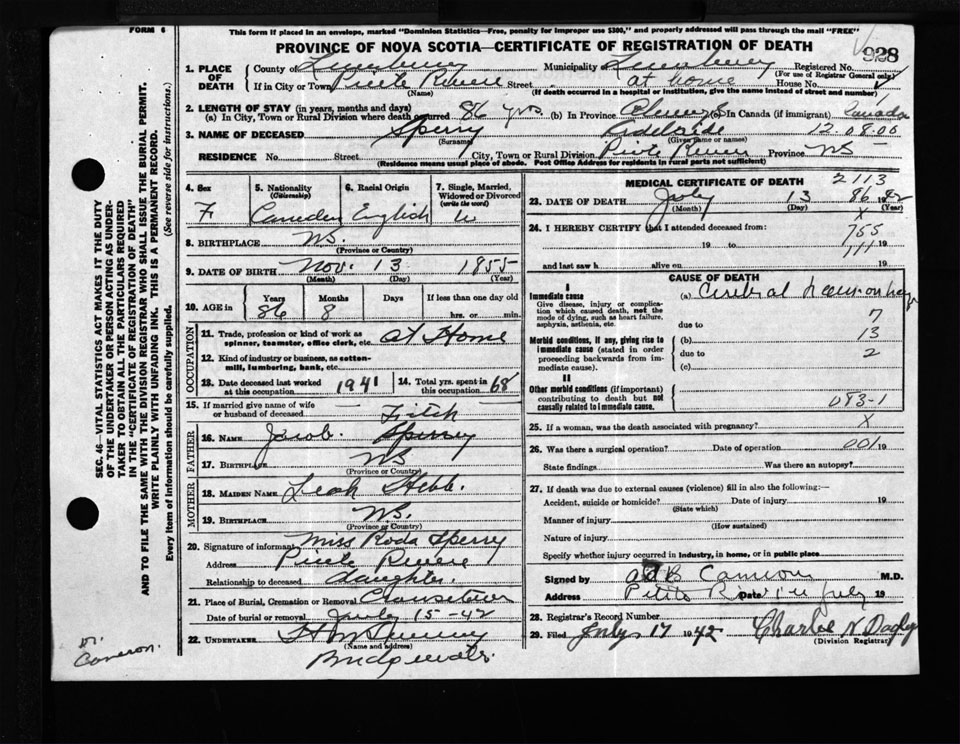 FORM 6
This form if placed in an envelope, marked "Dominion Statistics—Free, penalty for improper use $300," and properly addressed will pass through the mail "FREE"
PROVINCE OF NOVA SCOTIA—CERTIFICATE OF REGISTRATION OF DEATH
928
1. PLACE OF DEATH
County of Lunenburg Municipality Lunenburg Registered No.
(For use of Registrar General only)
If in City or Town Street at home House No.
(Name) (If death occurred in a hospital or institution, give the name instead of street and number)
2. LENGTH OF STAY (in years, months and days)
(a) In City, Town or Rural Division where death occurred 86 yrs. (b) In Province Always (c) In Canada (if immigrant) Canada
3. NAME OF DECEASED Sperry Adelaide 12.08.00
(Surname) (Given name or names)
RESIDENCE No. Street City, Town or Rural Division Province NS
(Residence means usual place of abode. Post Office Address for residents in rural parts not sufficient)
4. Sex
F
5. Nationality
(Citizenship)
6. Racial Origin
English
7. Single, Married, Widowed or Divorced
(write the word)
W
8. BIRTHPLACE NS
(Province or Country)
9. DATE OF BIRTH Nov. 13 1855
(Month) (Day) (Year)
10. AGE in
Years Months Days If less than one day old
86 8 hrs. or min.
OCCUPATION
11. Trade, profession or kind of work as spinner, teamster, office clerk, etc. At Home
12. Kind of industry or business, as cotton-mill, lumbering, bank, etc.
13. Date deceased last worked at this occupation 1941
14. Total yrs. spent in this occupation 68
15. If married give name of wife or husband of deceased
FATHER
16. NAME Jacob. Sperry
17. BIRTHPLACE NS
(Province or Country)
MOTHER
18. MAIDEN NAME Leah Hebb.
19. BIRTHPLACE NS.
(Province or Country)
20. Signature of informant Miss Roda Sperry
Address
Relationship to deceased daughter.
21. Place of Burial, Cremation or Removal
Date of burial or removal July 15-42
22. UNDERTAKER
(Name and address)
Bridgewater
MEDICAL CERTIFICATE OF DEATH 2113
23. DATE OF DEATH July 13 86 19
(Month) (Day) (Year)
X
24. I HEREBY CERTIFY that I attended deceased from:
755
19 to 19
111
and last saw h alive on 19
CAUSE OF DEATH
I
Immediate cause
Give disease, injury or complication which caused death, not the mode of dying, such as heart failure, asphyxia, asthenia, etc.
(a) Cerebral
due to 7
Morbid conditions, if any, giving rise to immediate cause (stated in order proceeding backwards from immediate cause).
(b) 13
due to 2
(c)
II
Other morbid conditions (if important) contributing to death but not causally related to immediate cause.
083-1
25. If a woman, was the death associated with pregnancy? X
26. Was there a surgical operation? Date of operation 001 19
State findings Was there an autopsy?
27. If death was due to external causes (violence) fill in also the following:—
Accident, suicide or homicide? Date of injury 19
(State which)
Manner of injury
(How sustained)
Nature of injury
Specify whether injury occurred in industry, in home, or in public place
Signed by Cameron M.D.
Address Petite Date July 19
28. Registrar's Record Number
29. Filed July 17 1942 Charles N Dagley
(Division Registrar)
SEC. 46—VITAL STATISTICS ACT MAKES IT THE DUTY
OF THE UNDERTAKER OR PERSON ACTING AS UNDER-
TAKER TO OBTAIN ALL THE PARTICULARS REQUIRED
IN THE "CERTIFICATE OF REGISTRATION OF DEATH"
AND TO FILE THE SAME WITH THE DIVISION REGISTRAR WHO SHALL ISSUE THE BURIAL PERMIT.
WRITE PLAINLY WITH UNFADING INK. THIS IS A PERMANENT RECORD.
Every item of Information should be carefully supplied. (See reverse side for instructions.)
Dr.
Cameron.